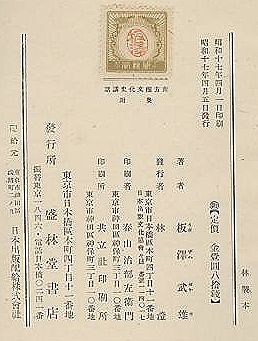 南方圏文化史講話
奥附
昭和十七年四月一日印刷
昭和十七年四月五日發行
【定價 金壹圓八拾錢】
著者 板澤武雄
東京市日本橋區本町四丁目十一番地
發行者 林
東京市神田區神保町三丁目一〇番地
印刷者 春山治部左衛門
東京市神田區神保町三丁目一〇番地
印刷所 共立社印刷所
東京市日本橋區本町四丁目十一番地
發行所 盛林堂書店
振替東京一八四六・電話日本橋
配給元
日本出版配給株式會社
林製本